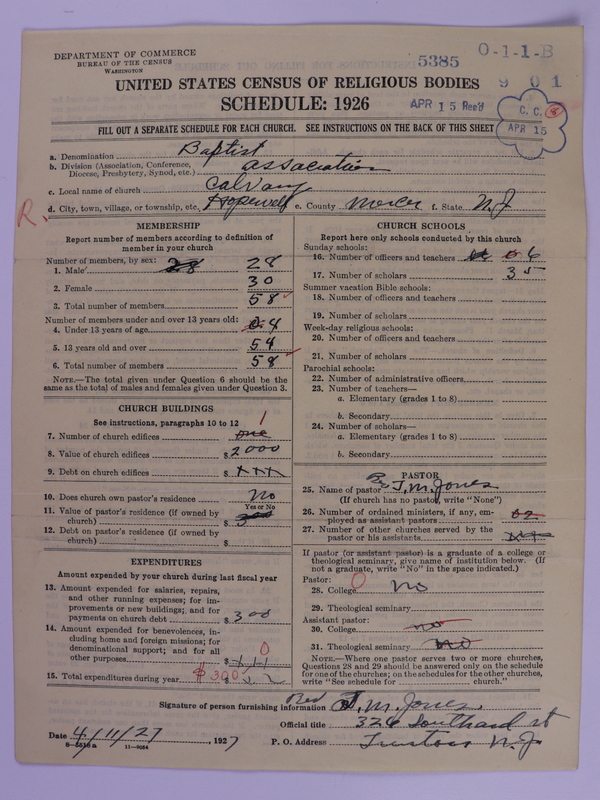 DEPARTMENT OF COMMERCE
BUREAU OF THE CENSUS
WASHINGTON
5385
O-1-1-B
9 0 1
UNITED STATES CENSUS OF RELIGIOUS BODIES
SCHEDULE: 1926
APR 15 Rec'd
C. C.
APR 15
FILL OUT A SEPARATE SCHEDULE FOR EACH CHURCH. SEE INSTRUCTIONS ON THE BACK OF THIS SHEET
a. Denomination Baptist
b. Division (Association, Conference, Diocese, Presbytery, Synod, etc.) association
c. Local name of church Calvary
d. City, town, village, or township, etc. Hopewell e. County Mercer f. State N.J
R.
MEMBERSHIP
Report number of members according to definition of
member in your church
Number of members, by sex:
1. Male 28 28
2. Female 30
3. Total number of members 58
Number of members under and over 13 years old:
4. Under 13 years of age 4
5. 13 years old and over 54
6. Total number of members 58
NOTE.—The total given under Question 6 should be the
same as the total of males and females given under Question 3.
CHURCH BUILDINGS
See instructions, paragraphs 10 to 12
7. Number of church edifices one 1
8. Value of church edifices $ 2000
9. Debt on church edifices $ xxx
10. Does church own pastor's residence No
Yes or No
11. Value of pastor's residence (if owned by
church) $ 300
12. Debt on pastor's residence (if owned by
church) $
EXPENDITURES
Amount expended by your church during last fiscal year
13. Amount expended for salaries, repairs,
and other running expenses; for im-
provements or new buildings; and for
payments on church debt $ 300
14. Amount expended for benevolences, in-
cluding home and foreign missions; for
denominational support; and for all
other purposes $ 0
15. Total expenditures during year $300 $
CHURCH SCHOOLS
Report here only schools conducted by this church
Sunday schools:
16. Number of officers and teachers 6
17. Number of scholars 35
Summer vacation Bible schools:
18. Number of officers and teachers
19. Number of scholars
Week-day religious schools:
20. Number of officers and teachers
21. Number of scholars
Parochial schools:
22. Number of administrative officers
23. Number of teachers—
a. Elementary (grades 1 to 8)
b. Secondary
24. Number of scholars—
a. Elementary (grades 1 to 8)
b. Secondary
PASTOR
25. Name of pastor Rev J. M. Jones
(If church has no pastor, write "None")
26. Number of ordained ministers, if any, em-
ployed as assistant pastors
27. Number of other churches served by the
pastor or his assistants
If pastor (or assistant pastor) is a graduate of a college or
theological seminary, give name of institution below. (If
not a graduate, write "No" in the space indicated.)
Pastor:
28. College 0 No
29. Theological seminary
Assistant pastor:
30. College no
31. Theological seminary no
NOTE.—Where one pastor serves two or more churches,
Questions 28 and 29 should be answered only on the schedule
for one of the churches; on the schedules for the other churches,
write "See schedule for church."
Signature of person furnishing information Rev J. M. Jones
Official title 326 Southard st
Date 4/11/27, 1927 P. O. Address Trenton N.J.
8—5518a 11—9054